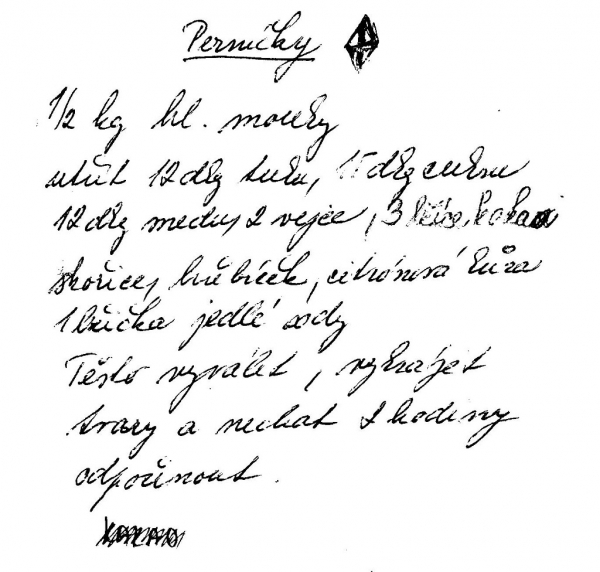 Perníčky
1/2 kg hl. mouky
utřít 12 dkg tuku, 15 dkg cukru
12 dkg medu, 2 vejce, 3 lžíce kakaa
skořice, hřebíček, citrónová kůra
1 lžička jedlé sody
Těsto vyválet, vykrájet
tvary a nechat 2 hodiny
odpočinout.